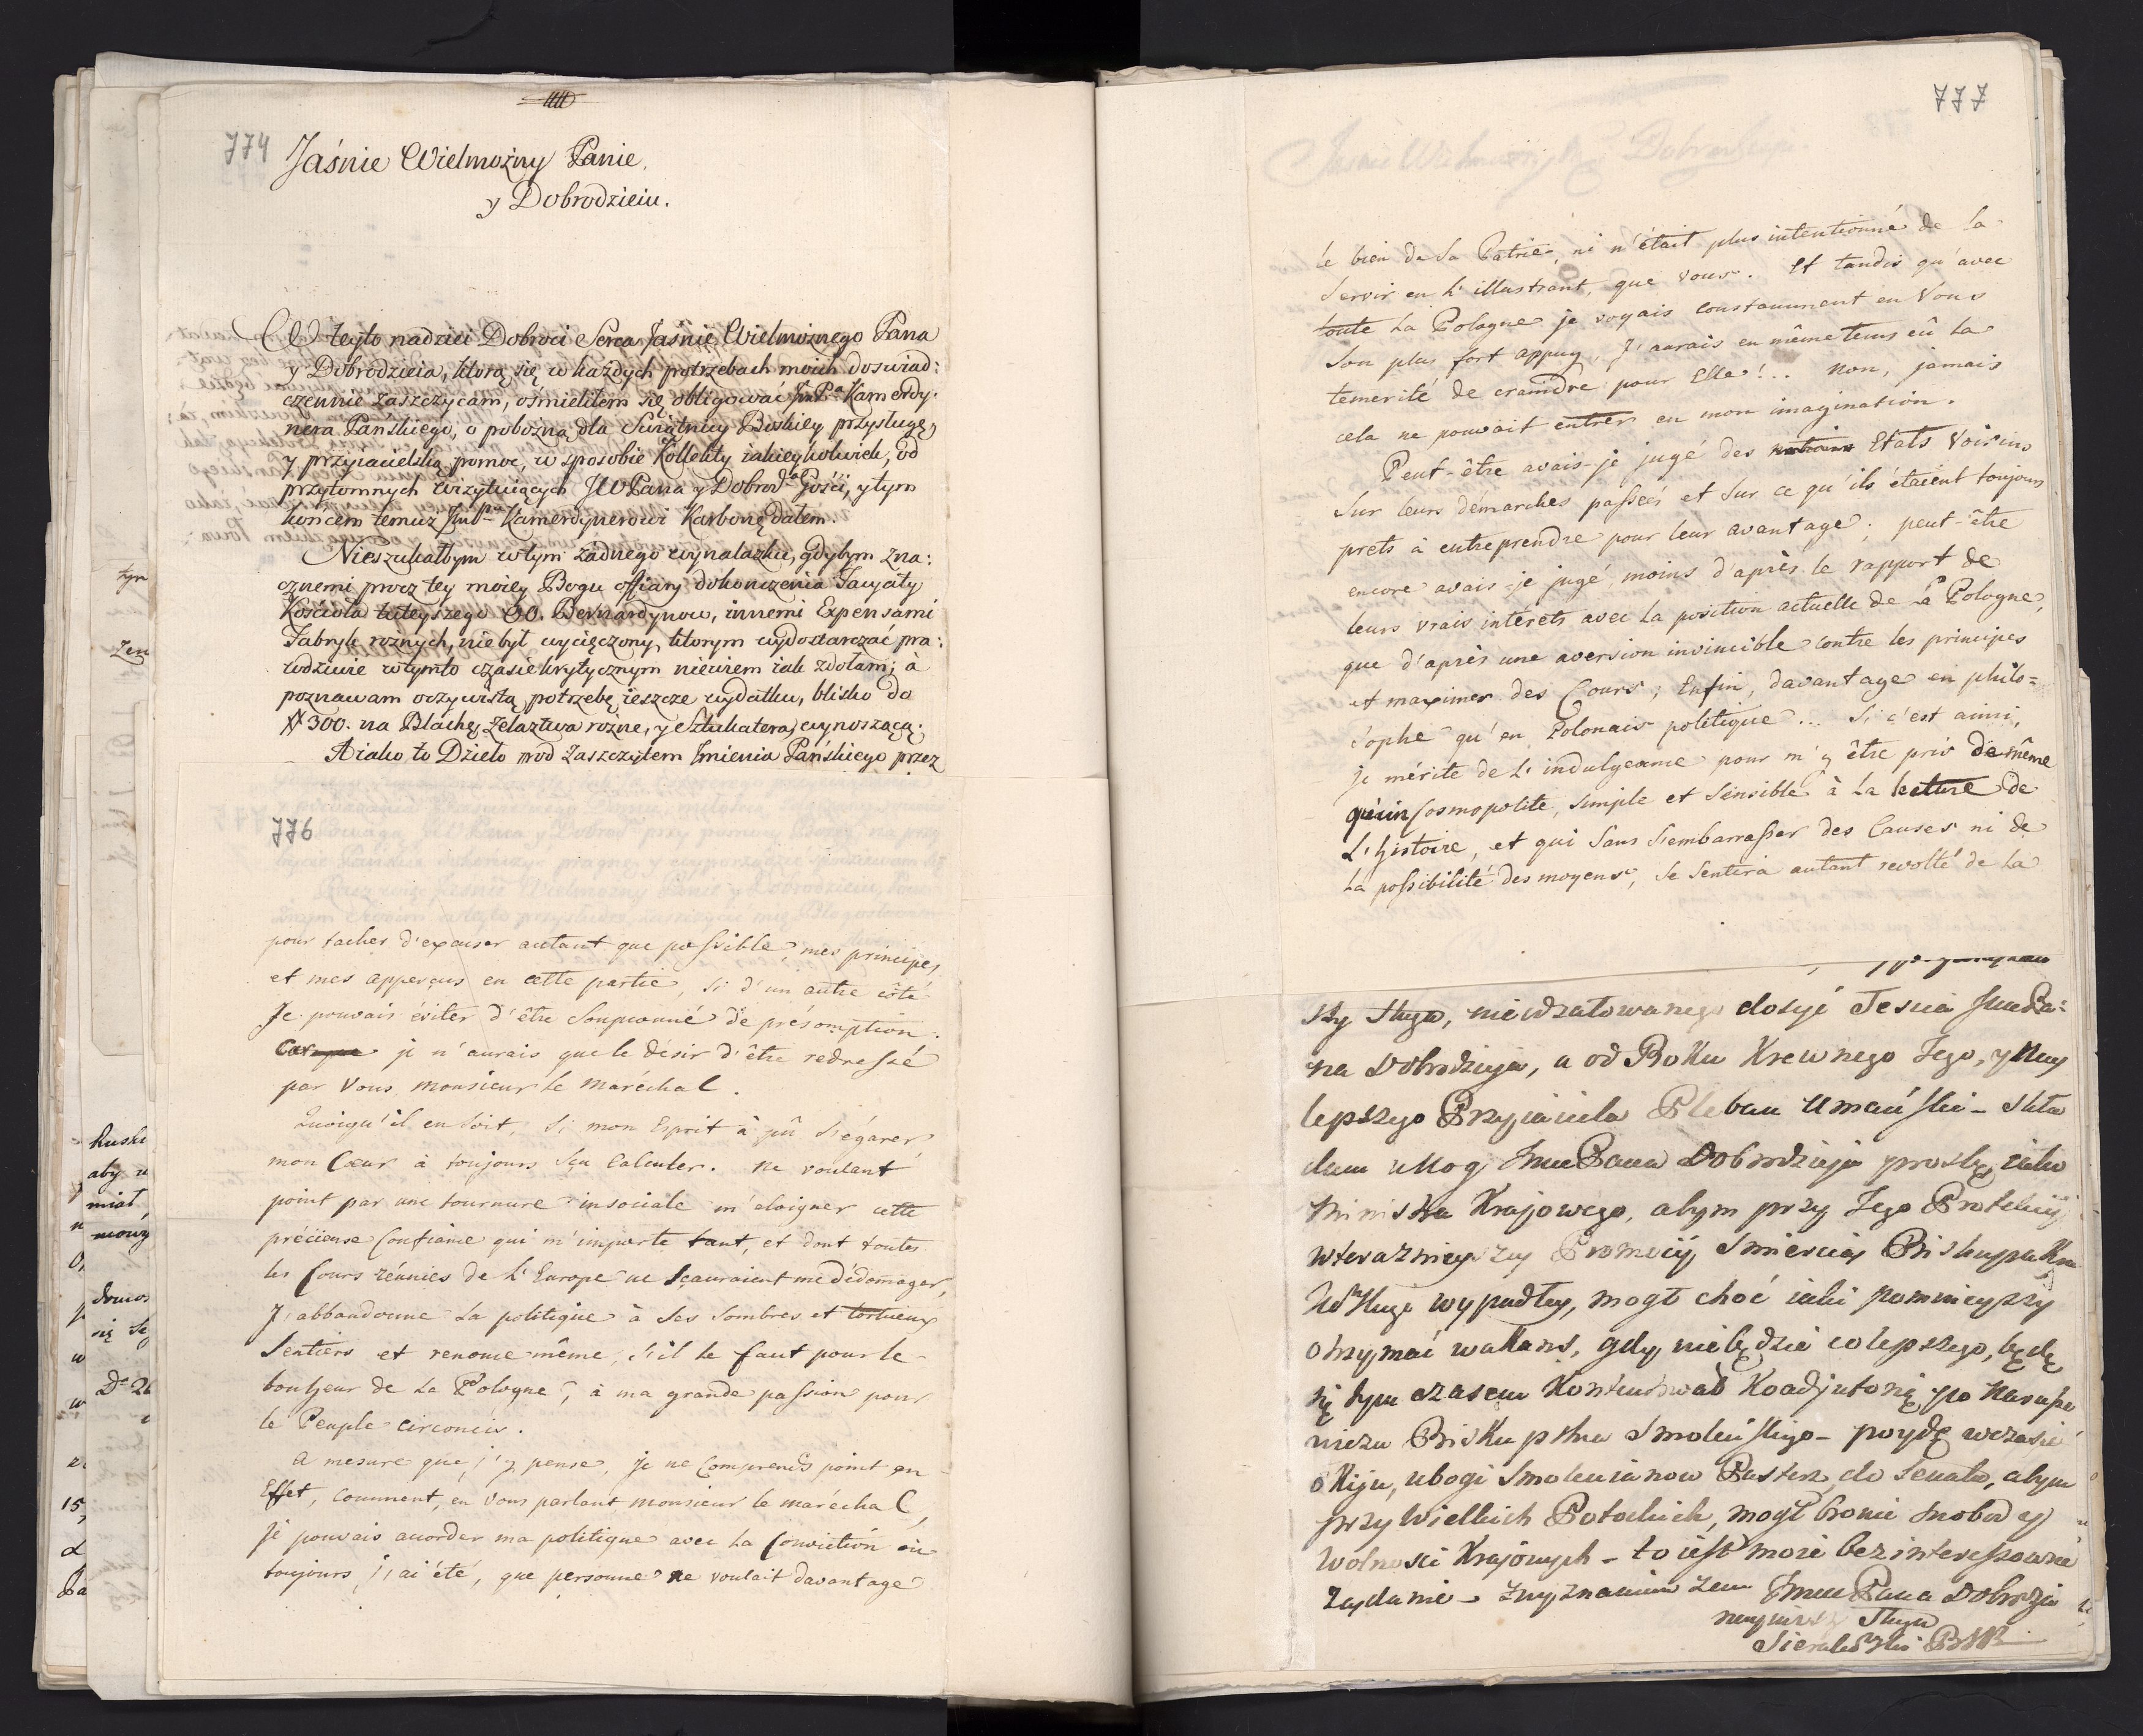 774
Jaśnie Wielmożny Panie,
y Dobrodzieiu.
W teyto nadziei Dobroci Serca Jaśnie Wielmożnego Pana
y Dobrodzieia, ktorą się w każdych potrzebach moich doswiad:
czennie zaszczycam, ośmieliłem się obligować JmPa Kamerdy-
nera Pańskiego, o pobozną dla Swiątnicy Boskiey przysługę,
y przyiacielską pomoc, w sposobie Kollekty iakieykolwiek, od
przytomnych wizytuiących JWPana y Dobrod. Gości, y tym
końcem temuż JmPu Kamerdynerowi Karbonę dałem.
Nieszukałbym w tym żadnego wynalazku, gdybym zna:
cznemi procz tey moiey Bogu offiary dokonczenia Facyaty
Kościoła tuteyszego OO. Bernardynow, innemi Expensami
Fabryk rożnych, nie był wycięczony, ktorym wydostarczać pra:
wdziwie w tymto czasie krytycznym niewiem iak zdołam; à
poznawam oczywistą potrzebę ieszcze wydatku, blisko do
# 300. na Blachę, żelaztwa rożne, y Sztukatera, wynoszącą.
A iako to Dzieło pod Zaszczytem Imienia Pańskiego przez
776
pour tacher d'excuser autant que possible, mes principes,
et mes apperçus en cette partie, si d'un autre côté
Je pouvais éviter d'être soupçonné de présomption.
je n'aurais que le désir d'être redressé
par Vous, monsieur le maréchal.
Quoiqu'il en soit, si mon Esprit à pû s'égarer,
mon Cœur à toujours sçu calculer. ne voulant
point par une tournure insociale m'eloigner cette
précieuse Confiance qui m'importe tant, et dont toutes
les Cours réunies de l'Europe ne sçauraient me dédomager,
J'abbandonne la politique à ses sombres et tortueux
Sentiers et renonce même, s'il le faut pour le
bonheur de la Pologne, à ma grande passion pour
le Peuple circoncis.
A mesure que j'y pense, je ne Comprends point en
Effet, comment, en Vous parlant monsieur le maréchal,
je pouvais accorder ma politique avec la Conviction où
toujours j'ai été, que personne ne voulait davantage
777
le bien de sa Patrie, ni n'était plus intentionné de la
servir en l'illustrant, que vous. Et tandis qu'avec
toute la Pologne je voyais constamment en Vous
son plus fort appuy, J'aurais en même tems eû la
temerité de craindre pour Elle!.. Non, jamais
cela ne pouvait entrer en mon imagination.
Peut-être avais-je jugé des Etats Voisins
sur leurs démarches passées et sur ce qu'ils étaient toujours
prets à entreprendre pour leur avantage; peut-être
encore avais-je jugé, moins d'après le rapport de
leurs vrais interets avec la position actuelle de la Pologne,
que d'après une aversion invincible contre les principes
et maximes des Cours; Enfin, davantage en philo=
sophe qu'en Polonais politique... Si c'est ainsi,
je mérite de l'indulgence pour m'y être pris de même
qu'un Cosmopolite, simple et sensible à la lecture de
l'histoire, et qui sans s'embarrasser des Causes ni de
la possibilité des moyens, se sentira autant revolté de la
sługa, nieodzałowanego dosyć Tescia JmcPa:
na Dobrodzieja, a od Boku Krewnego Jego, y Nay
lepszego Przyjaciela Pleban Umański - skła
dam u Nog JmcPana Dobrodzieja prosbę, iako
Ministra Krajowego, abym przy Jego Protekcij
w teraznieyszey Promocij Smiercią Biskupa
wypadłey, mogł choć iaki pomnieyszy
otrzymać wakans, gdy nie będzie co lepszego, będę
się tym czasem Kontentował Koadjutorią po Narusze
wiczu Biskupstwa Smoleńskiego - poydę w czasie
o Kiju, ubogi Smolenianow Pasterz do Senatu, abym
przy Wielkich Potockich, mogł bronić swobod y
Wolnosci Krajowych - to iest moie bez interessowne
żądanie - z wyznaniem żem Jmc Pana Dobrodzie
Sługa